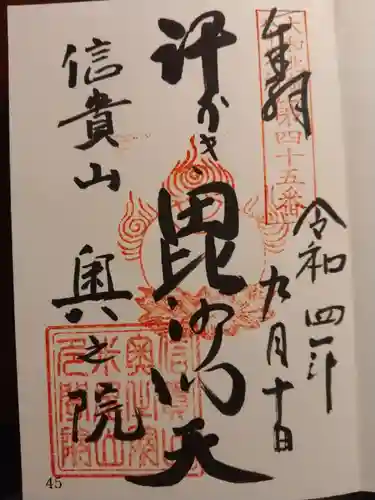 奉拝
大和北部 第四十五番
令和四年
九月十日
汗かき
毘沙門天
信貴山
奥之院
45